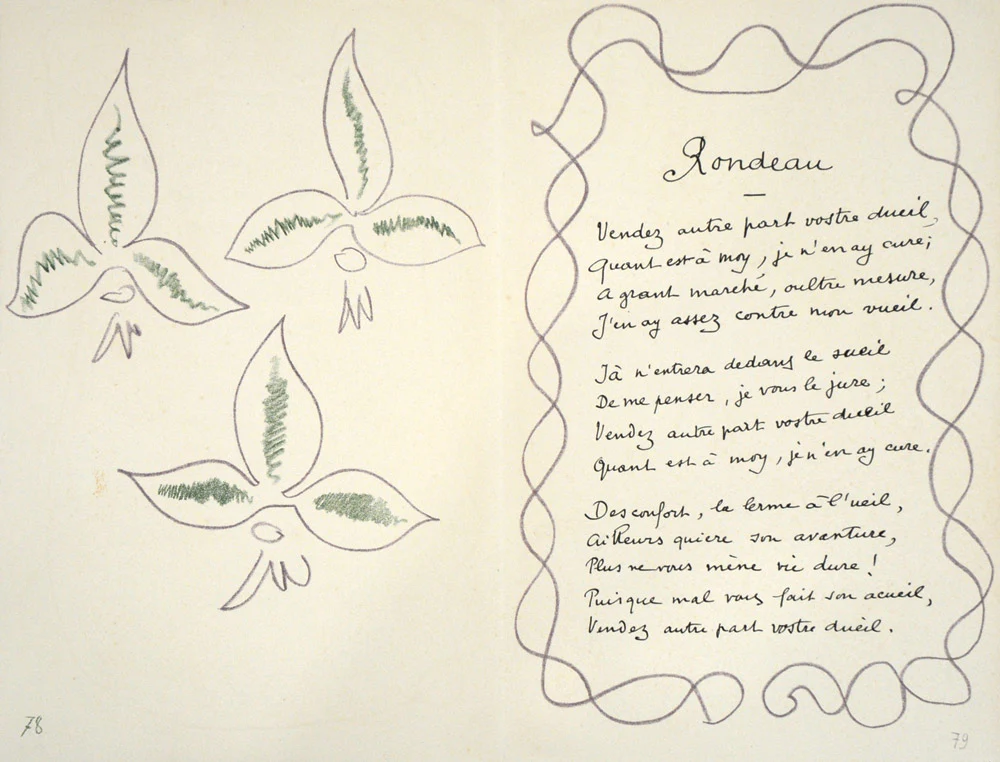 78
Rondeau
Vendez autre part vostre dueil,
Quant est à moy, je n'en ay cure;
A grant marché, oultre mesure,
J'en ay assez contre mon vueil.
Jà n'entrera dedans le sueil
De me penser, je vous le jure;
Vendez autre part vostre dueil
Quant est à moy, je n'en ay cure.
Desconfort, la lerme à l'ueil,
Ailleurs quiere son avanture,
Plus ne vous mène vie dure!
Puisque mal vous fait son acueil,
Vendez autre part vostre dueil.
79